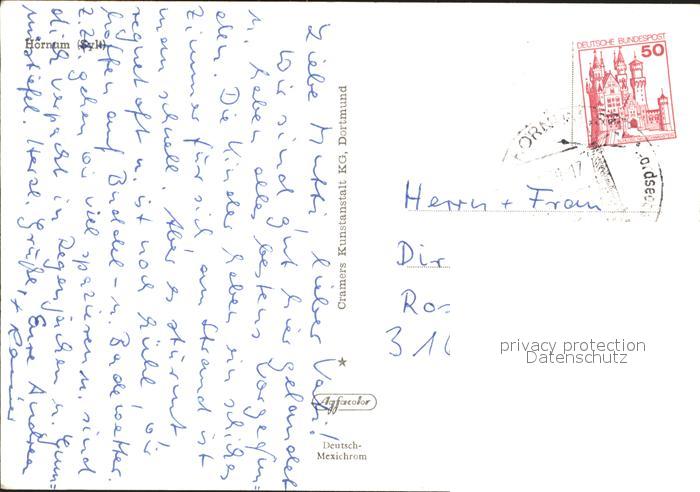 Hörnum (Sylt)
Liebe Mutti, lieber Vati!
Wir sind gut hier gelandet
u. haben alles bestens vorgefun=
den. Die Kinder haben ein schönes
Zimmer für sich am Strand ist
man schnell. Aber es stürmt
regnet oft u. ist noch kühl! Wir
hoffen auf Buddel- u. Badewetter.
z. Zt. gehen wir viel spazieren u. sind
dick verpackt in Regenjacken u. Gum=
mistiefel. Herzl. Grüße, Eure Andrea
+ Rainer
Cramers Kunstanstalt KG, Dortmund
Agfacolor
Deutsch-
Mexichrom
DEUTSCHE BUNDESPOST
50
Herrn + Frau
Dir
Ros
310
privacy protection
Datenschutz